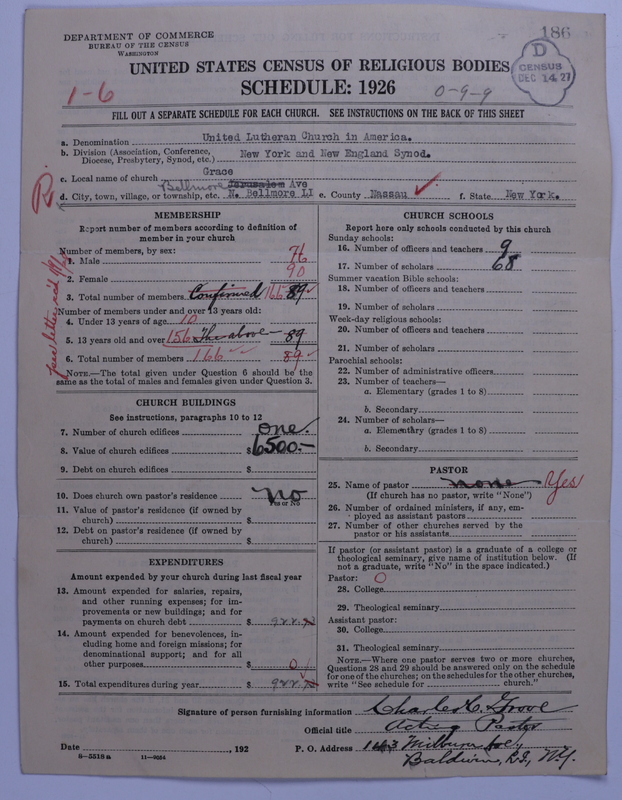 DEPARTMENT OF COMMERCE
BUREAU OF THE CENSUS
WASHINGTON
186
D
CENSUS
DEC 14 27
UNITED STATES CENSUS OF RELIGIOUS BODIES
SCHEDULE: 1926
1-6
0-9-9
FILL OUT A SEPARATE SCHEDULE FOR EACH CHURCH. SEE INSTRUCTIONS ON THE BACK OF THIS SHEET
a. Denomination United Lutheran Church in America.
b. Division (Association, Conference, Diocese, Presbytery, Synod, etc.) New York and New England Synod.
c. Local name of church Grace
Bellmore Jerusalem Ave
d. City, town, village, or township, etc. N. Bellmore LI e. County Nassau f. State New York.
R
MEMBERSHIP
Report number of members according to definition of
member in your church
Number of members, by sex:
1. Male 76
2. Female 90
3. Total number of members Confirmed 166 89
Number of members under and over 13 years old:
4. Under 13 years of age 10
5. 13 years old and over 156 The above 89
6. Total number of members 166 89
NOTE.—The total given under Question 6 should be the
same as the total of males and females given under Question 3.
CHURCH BUILDINGS
See instructions, paragraphs 10 to 12
7. Number of church edifices one.
8. Value of church edifices $ 6500.-
9. Debt on church edifices $
10. Does church own pastor's residence No
Yes or No
11. Value of pastor's residence (if owned by
church) $
12. Debt on pastor's residence (if owned by
church) $
EXPENDITURES
Amount expended by your church during last fiscal year
13. Amount expended for salaries, repairs,
and other running expenses; for im-
provements or new buildings; and for
payments on church debt $ 922.
14. Amount expended for benevolences, in-
cluding home and foreign missions; for
denominational support; and for all
other purposes $ 0
15. Total expenditures during year $ 922.
CHURCH SCHOOLS
Report here only schools conducted by this church
Sunday schools:
16. Number of officers and teachers 9
17. Number of scholars 68
Summer vacation Bible schools:
18. Number of officers and teachers
19. Number of scholars
Week-day religious schools:
20. Number of officers and teachers
21. Number of scholars
Parochial schools:
22. Number of administrative officers
23. Number of teachers—
a. Elementary (grades 1 to 8)
b. Secondary
24. Number of scholars—
a. Elementary (grades 1 to 8)
b. Secondary
PASTOR
25. Name of pastor none Yes
(If church has no pastor, write "None")
26. Number of ordained ministers, if any, em-
ployed as assistant pastors
27. Number of other churches served by the
pastor or his assistants
If pastor (or assistant pastor) is a graduate of a college or
theological seminary, give name of institution below. (If
not a graduate, write "No" in the space indicated.)
Pastor: 0
28. College
29. Theological seminary
Assistant pastor:
30. College
31. Theological seminary
NOTE.—Where one pastor serves two or more churches,
Questions 28 and 29 should be answered only on the schedule
for one of the churches; on the schedules for the other churches,
write "See schedule for church."
Signature of person furnishing information Charles C. Grove
Official title Acting Pastor
Date , 192
P. O. Address 143 Milburn Ave.,
Baldwin, L.I., N.Y.
8-5518a 11-9084